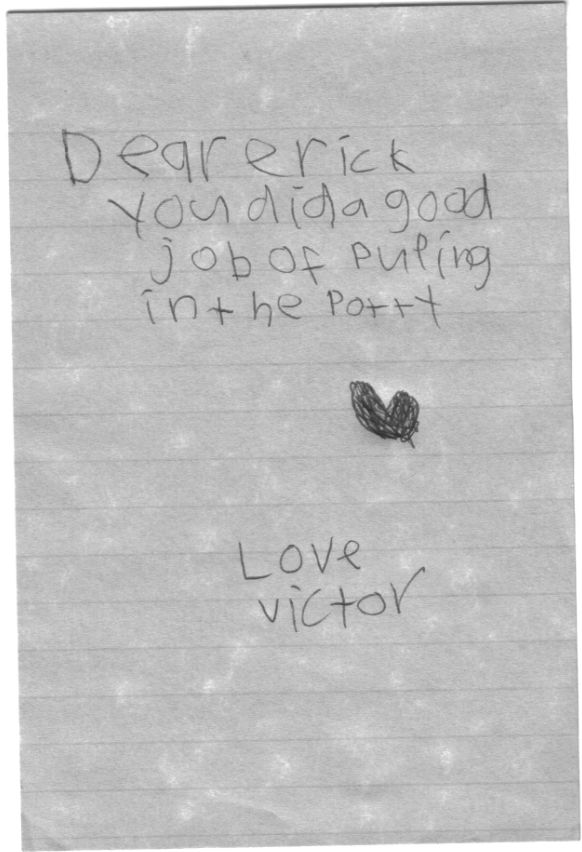 Dear erick
you did a good
job of puping
in the Pottt
Love
victor